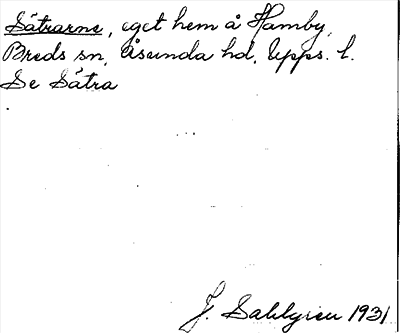 Såtrarne, eget hem å Hamby,
Breds sn, Åsunda hd, Upps. l.
Se Såtra
J. Sahlgren 1931